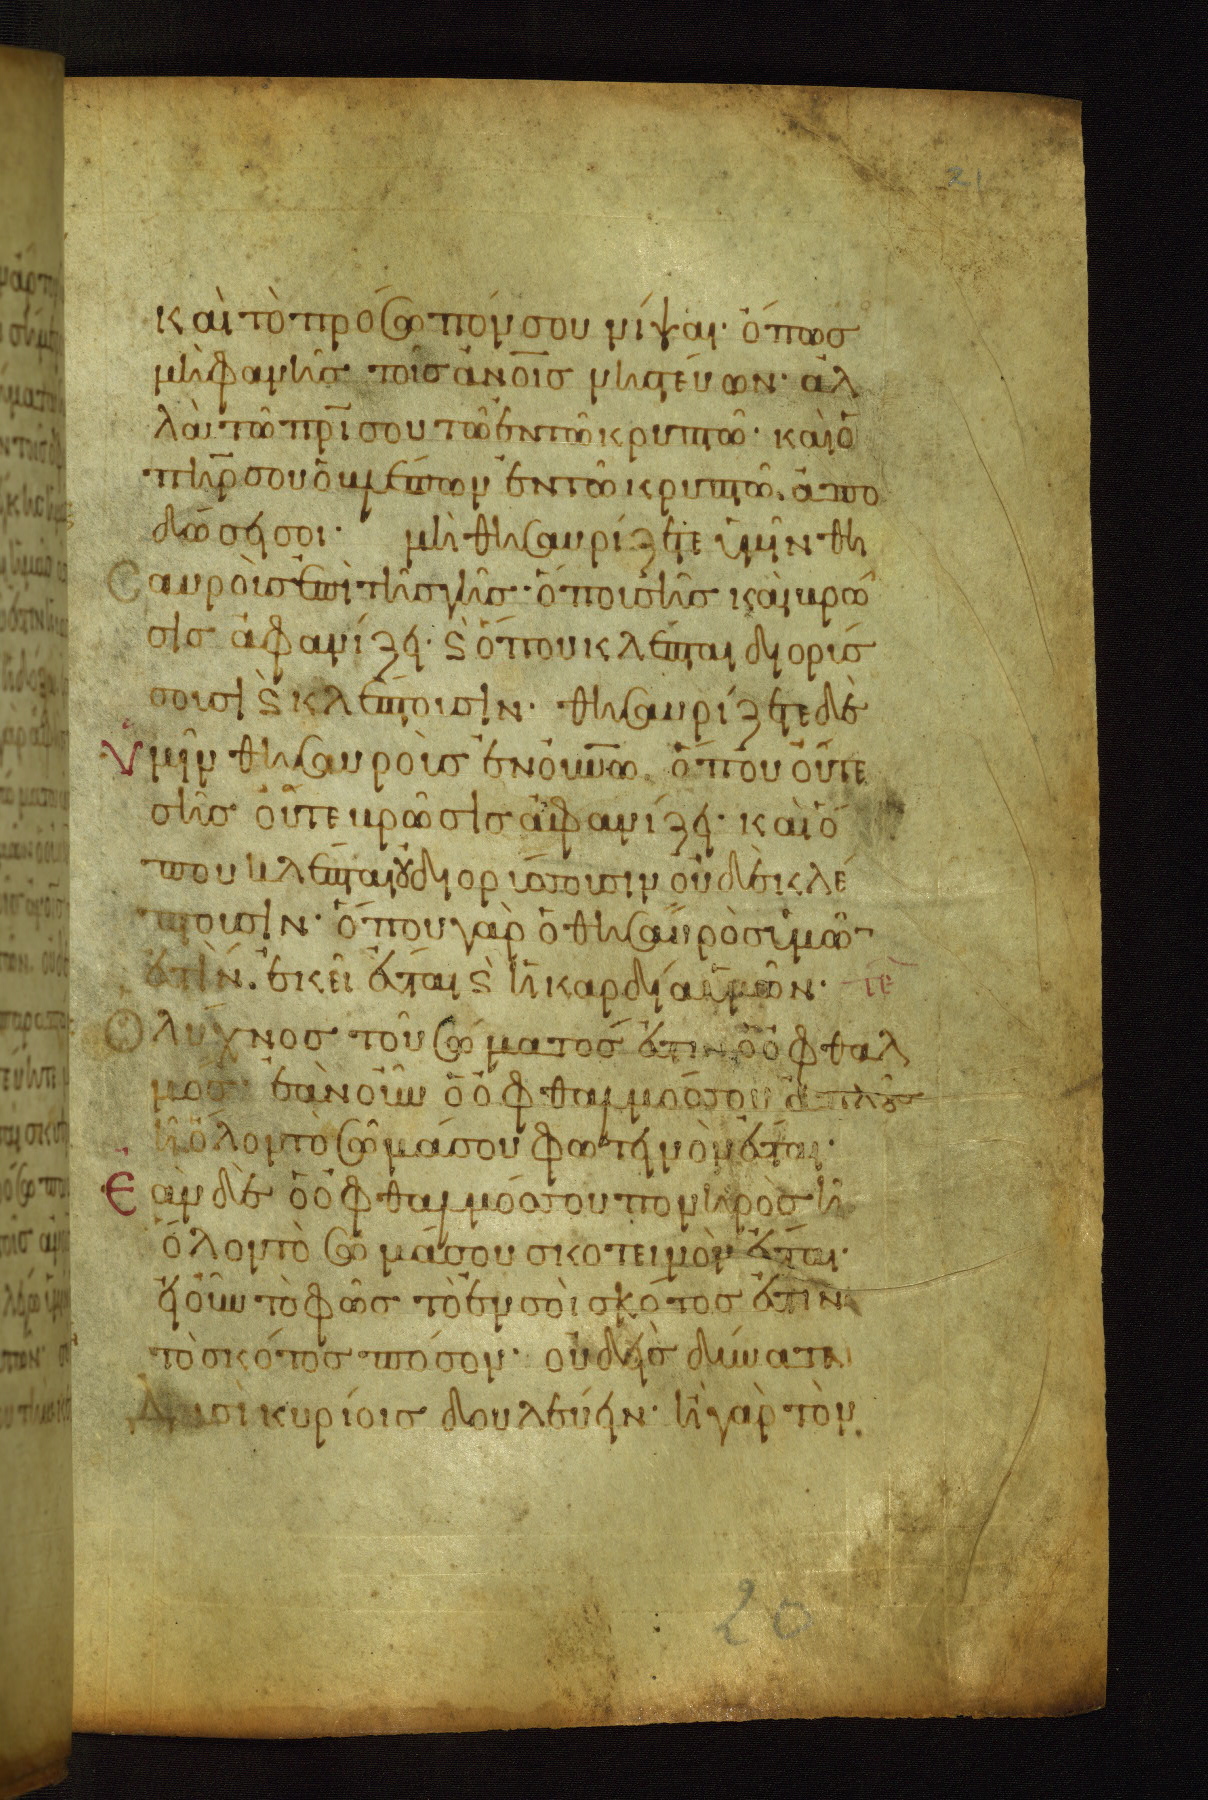 21
καὶ τὸ πρόσωπόν σου νίψαι· ὅπως
μὴ φανῆς τοῖς ἀνοῖς νηστεύων· ἀλ
λὰ τῶ πρι σου τῶ ἐν τῶ κρυπτῶ· καὶ ὁ
πηρ σου ὁ βλέπων ἐν τῶ κρυπτῶ. ἀπο
δώσει σοι· μὴ θησαυρίζετε ὑμῖν θη
σαυροὺς ἐπὶ τῆς γῆς· ὅπου σὴς καὶ βρῶ
σις ἀφανίζει· ϛ ὅπου κλέπται διορύσ
σουσι ϛ κλέπτουσιν· θησαυρίζετε δὲ
ὑμῖν θησαυροὺς ἐν οὐνω. ὅπου οὔτε
σὴς οὔτε βρῶσις ἀφανίζει· καὶ ὅ
που κλέπται οὐ διορύσσουσιν οὐδὲ κλέ
πτουσιν· ὅπου γὰρ ὁ θησαυρὸς ὑμῶν
ἐστὶν. ἐκεῖ ἔσται ϛ ἡ καρδία ὑμῶν· ιε
Ὁ λύχνος τοῦ σώματός ἐστιν ὁ ὀφθαλ
μός ἐὰν οὖν ὁ ὀφθαλμός σου ἁπλοῦς
ἦ ὅλον τὸ σῶμά σου φωτεινὸν ἔσται·
Ἐὰν δὲ ὁ ὀφθαλμός σου πονηρὸς ἦ
ὅλον τὸ σῶμά σου σκοτεινὸν ἔσται·
εἰ οὖν τὸ φῶς τὸ ἐν σοὶ σκότος ἐστὶν
τὸ σκότος πόσον· οὐδεὶς δύνατε
Δυσὶ κυρίοις δουλεύειν· ἢ γὰρ τὸν
20